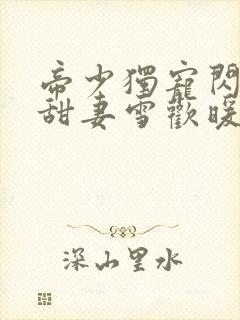 帝少獨寵閃
甜妻雪歡暖
深山里水